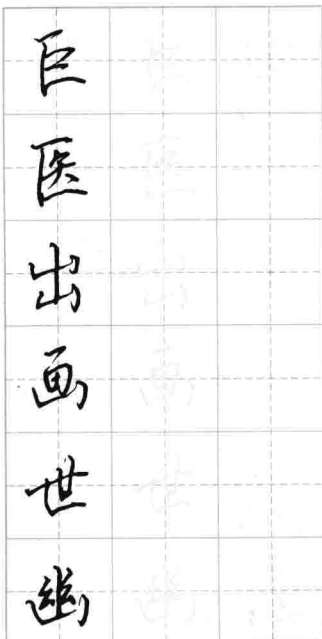 巨
医
出
画
世
幽